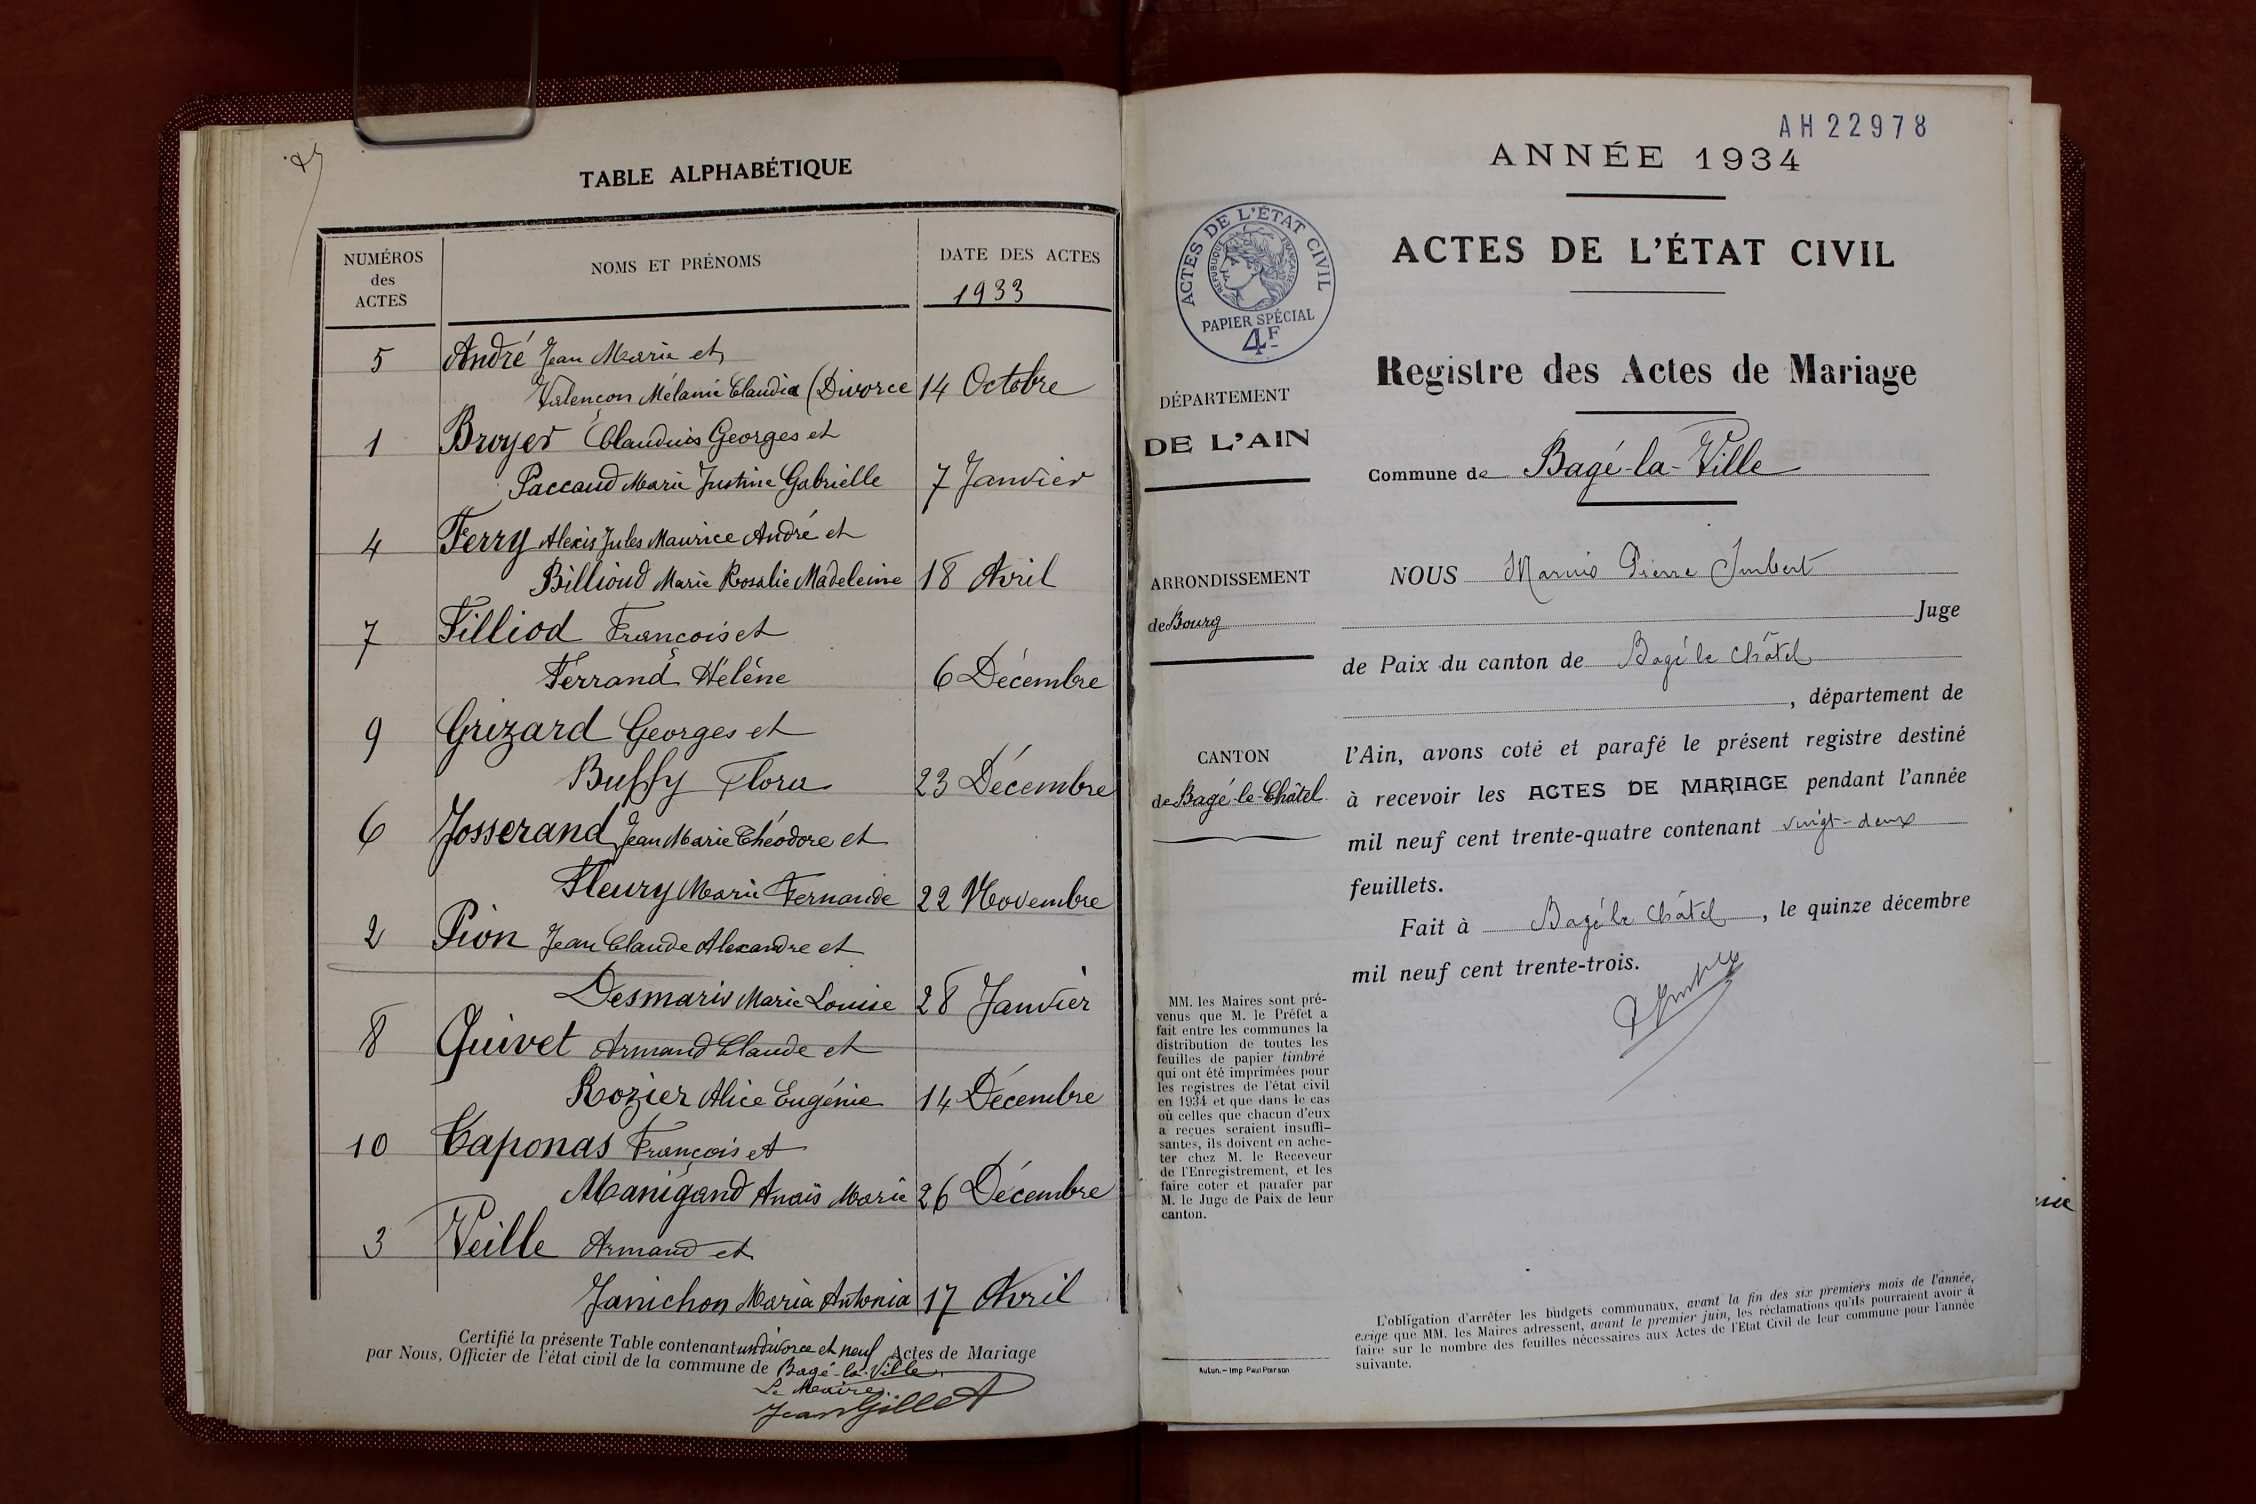 TABLE ALPHABÉTIQUE
NUMÉROS
des
ACTES
NOMS ET PRÉNOMS
DATE DES ACTES
1933
5 André Jean Marie et
Valençon Mélanie Claudia (Divorce 14 Octobre
1 Broyer Claudius Georges et
Paccaud Marie Justine Gabrielle 7 Janvier
4 Ferry Alexis Jules Maurice André et
Billioud Marie Rosalie Madeleine 18 Avril
7 Filliod François et
Ferrand Hélène 6 Décembre
9 Grizard Georges et
Buffy Flora 23 Décembre
6 Josserand Jean Marie Théodore et
Fleury Marie Fernande 22 Novembre
2 Pion Jean Claude Alexandre et
Desmaris Marie Louise 28 Janvier
8 Quivet Armand Claude et
Rozier Alice Eugénie 14 Décembre
10 Taponas François et
Manigand Anaïs Marie 26 Décembre
3 Veille Armand et
Janichon Maria Antonia 17 Avril
Certifié la présente Table contenant un divorce et neuf Actes de Mariage
par Nous, Officier de l'état civil de la commune de Bagé-la-Ville
Le Maire,
Jean Gillet
AH22978
ANNÉE 1934
ACTES DE L'ÉTAT CIVIL
RÉPUBLIQUE FRANÇAISE
PAPIER SPÉCIAL
4F
ACTES DE L'ÉTAT CIVIL
Registre des Actes de Mariage
DÉPARTEMENT
DE L'AIN
Commune de Bagé-la-Ville
ARRONDISSEMENT
de Bourg
CANTON
de Bagé-le-Châtel
NOUS Marius Pierre Imbert
Juge
de Paix du canton de Bagé le Châtel
, département de
l'Ain, avons coté et parafé le présent registre destiné
à recevoir les ACTES DE MARIAGE pendant l'année
mil neuf cent trente-quatre contenant vingt-deux
feuillets.
Fait à Bagé le Châtel, le quinze décembre
mil neuf cent trente-trois.
MM. les Maires sont pré-
venus que M. le Préfet a
fait entre les communes la
distribution de toutes les
feuilles de papier timbré
qui ont été imprimées pour
les registres de l'état civil
en 1934 et que dans le cas
où celles que chacun d'eux
a reçues seraient insuffi-
santes, ils doivent en ache-
ter chez M. le Receveur
de l'Enregistrement, et les
faire coter et parafer par
M. le Juge de Paix de leur
canton.
Autun. — Imp. Paul Pernson
L'obligation d'arrêter les budgets communaux, avant la fin des six premiers mois de l'année,
exige que MM. les Maires adressent, avant le premier juin, les réclamations qu'ils pourraient avoir à
faire sur le nombre des feuilles nécessaires aux Actes de l'Etat Civil de leur commune pour l'année
suivante.